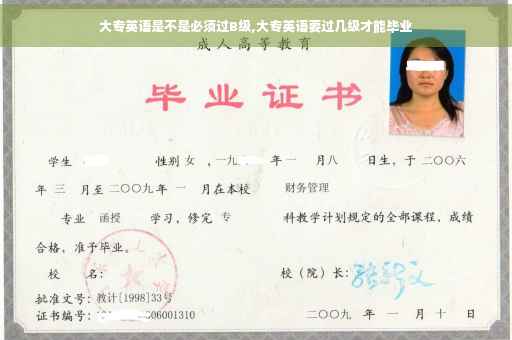 大专英语是不是必须过B级,大专英语要过几级才能毕业
成人高等教育
毕业证书
学生 性别 女 ,一九 年一 月八 日生,于二〇〇六
年 三 月至二〇〇九年 一 月在本校 财务管理
专业 函授 学习,修完 专 科教学计划规定的全部课程,成绩
合格,准予毕业。
校 名: 校(院)长:
批准文号:教计[1998]33号
证书编号: 06001310 二〇〇九 年 一 月 十 日